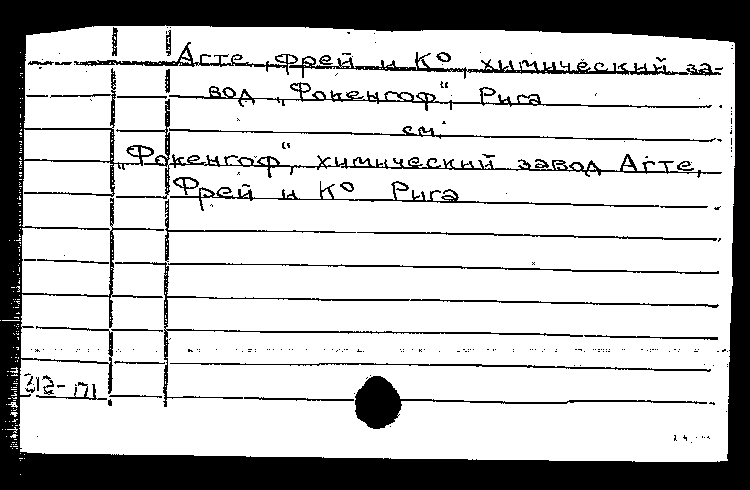 Агте, Фрей и К⁰, химический за-
вод „Фокенгоф“, Рига
см.
„Фокенгоф“, химический завод Агте,
Фрей и К⁰ Рига
312-171